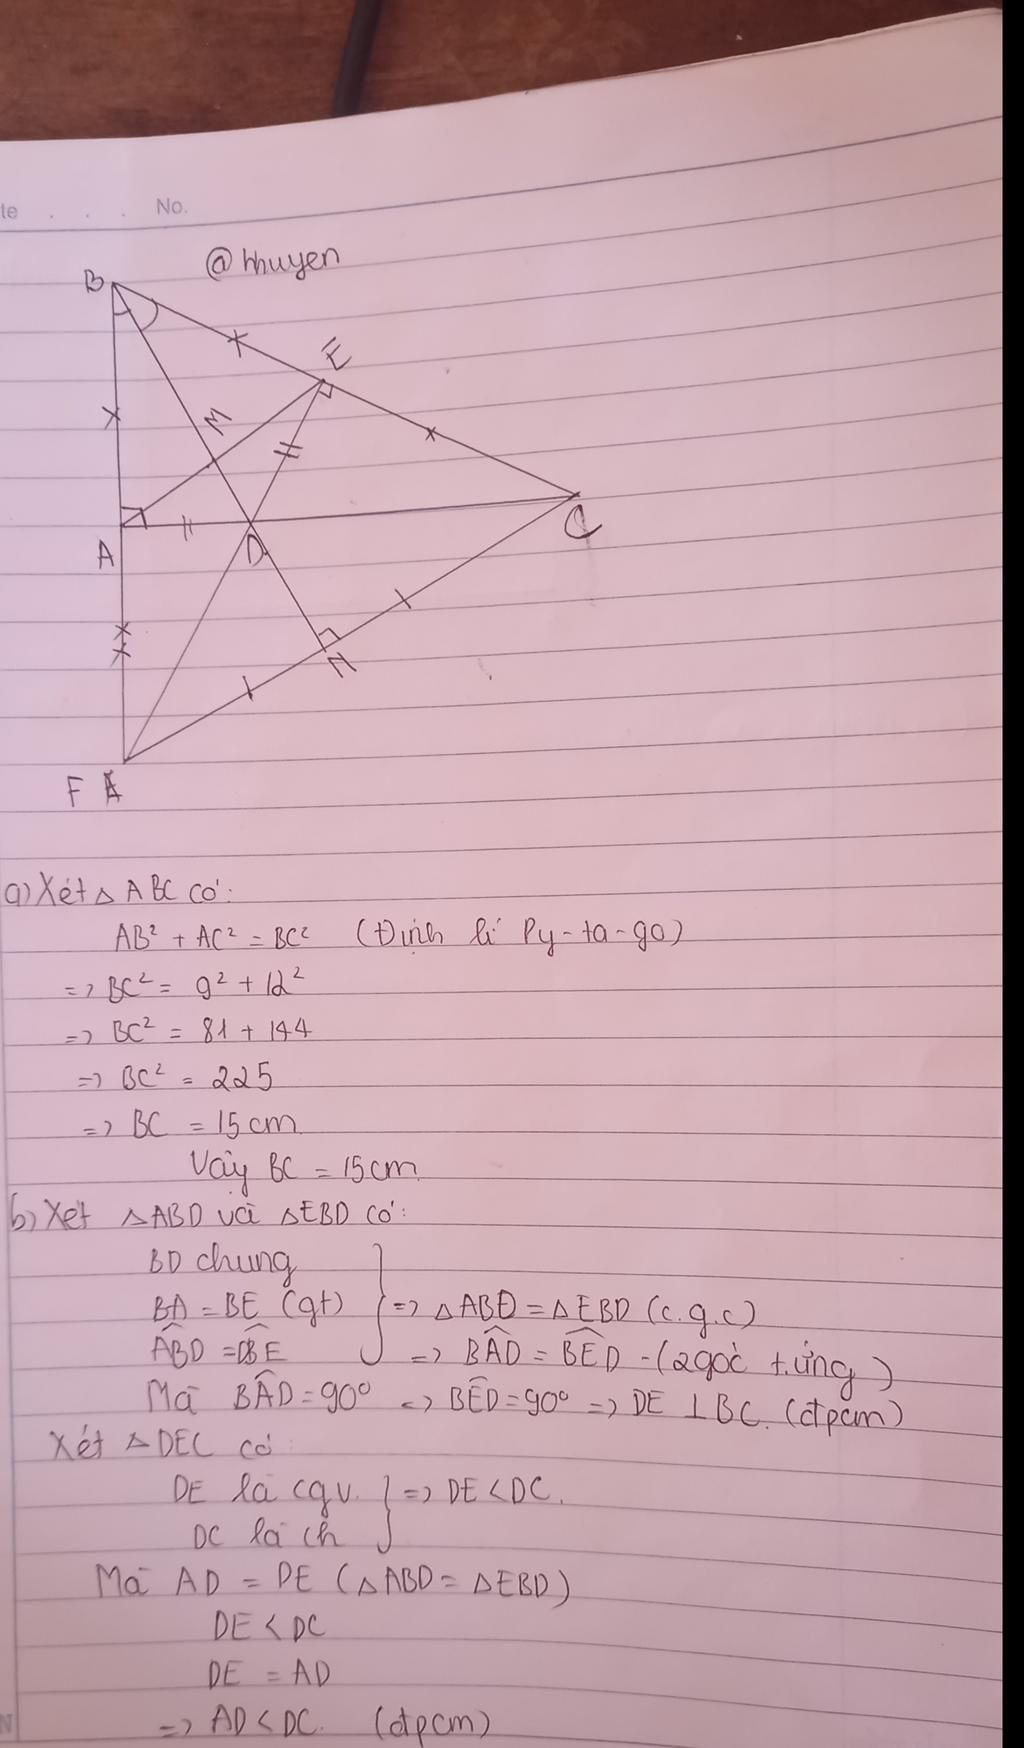 te . . . No.
@hhuyen
B
E
M
A
D
C
N
F A
a) Xét △ ABC có:
AB² + AC² = BC² (Định lí Py-ta-go)
=> BC² = 9² + 12²
=> BC² = 81 + 144
=> BC² = 225
=> BC = 15cm
Vậy BC = 15cm
b) Xét △ABD và △EBD có:
BD chung
BA = BE (gt) } => △ABD = △EBD (c.g.c)
ABD^ = DBE^ => BAD^ = BED^ - (2góc t.ứng)
Mà BAD^ = 90° => BED^ = 90° => DE ⊥ BC. (đpcm)
Xét △DEC có
DE là cgv. } => DE < DC.
DC là ch
Mà AD = DE (△ABD = △EBD)
DE < DC
DE = AD
=> AD < DC. (đpcm)